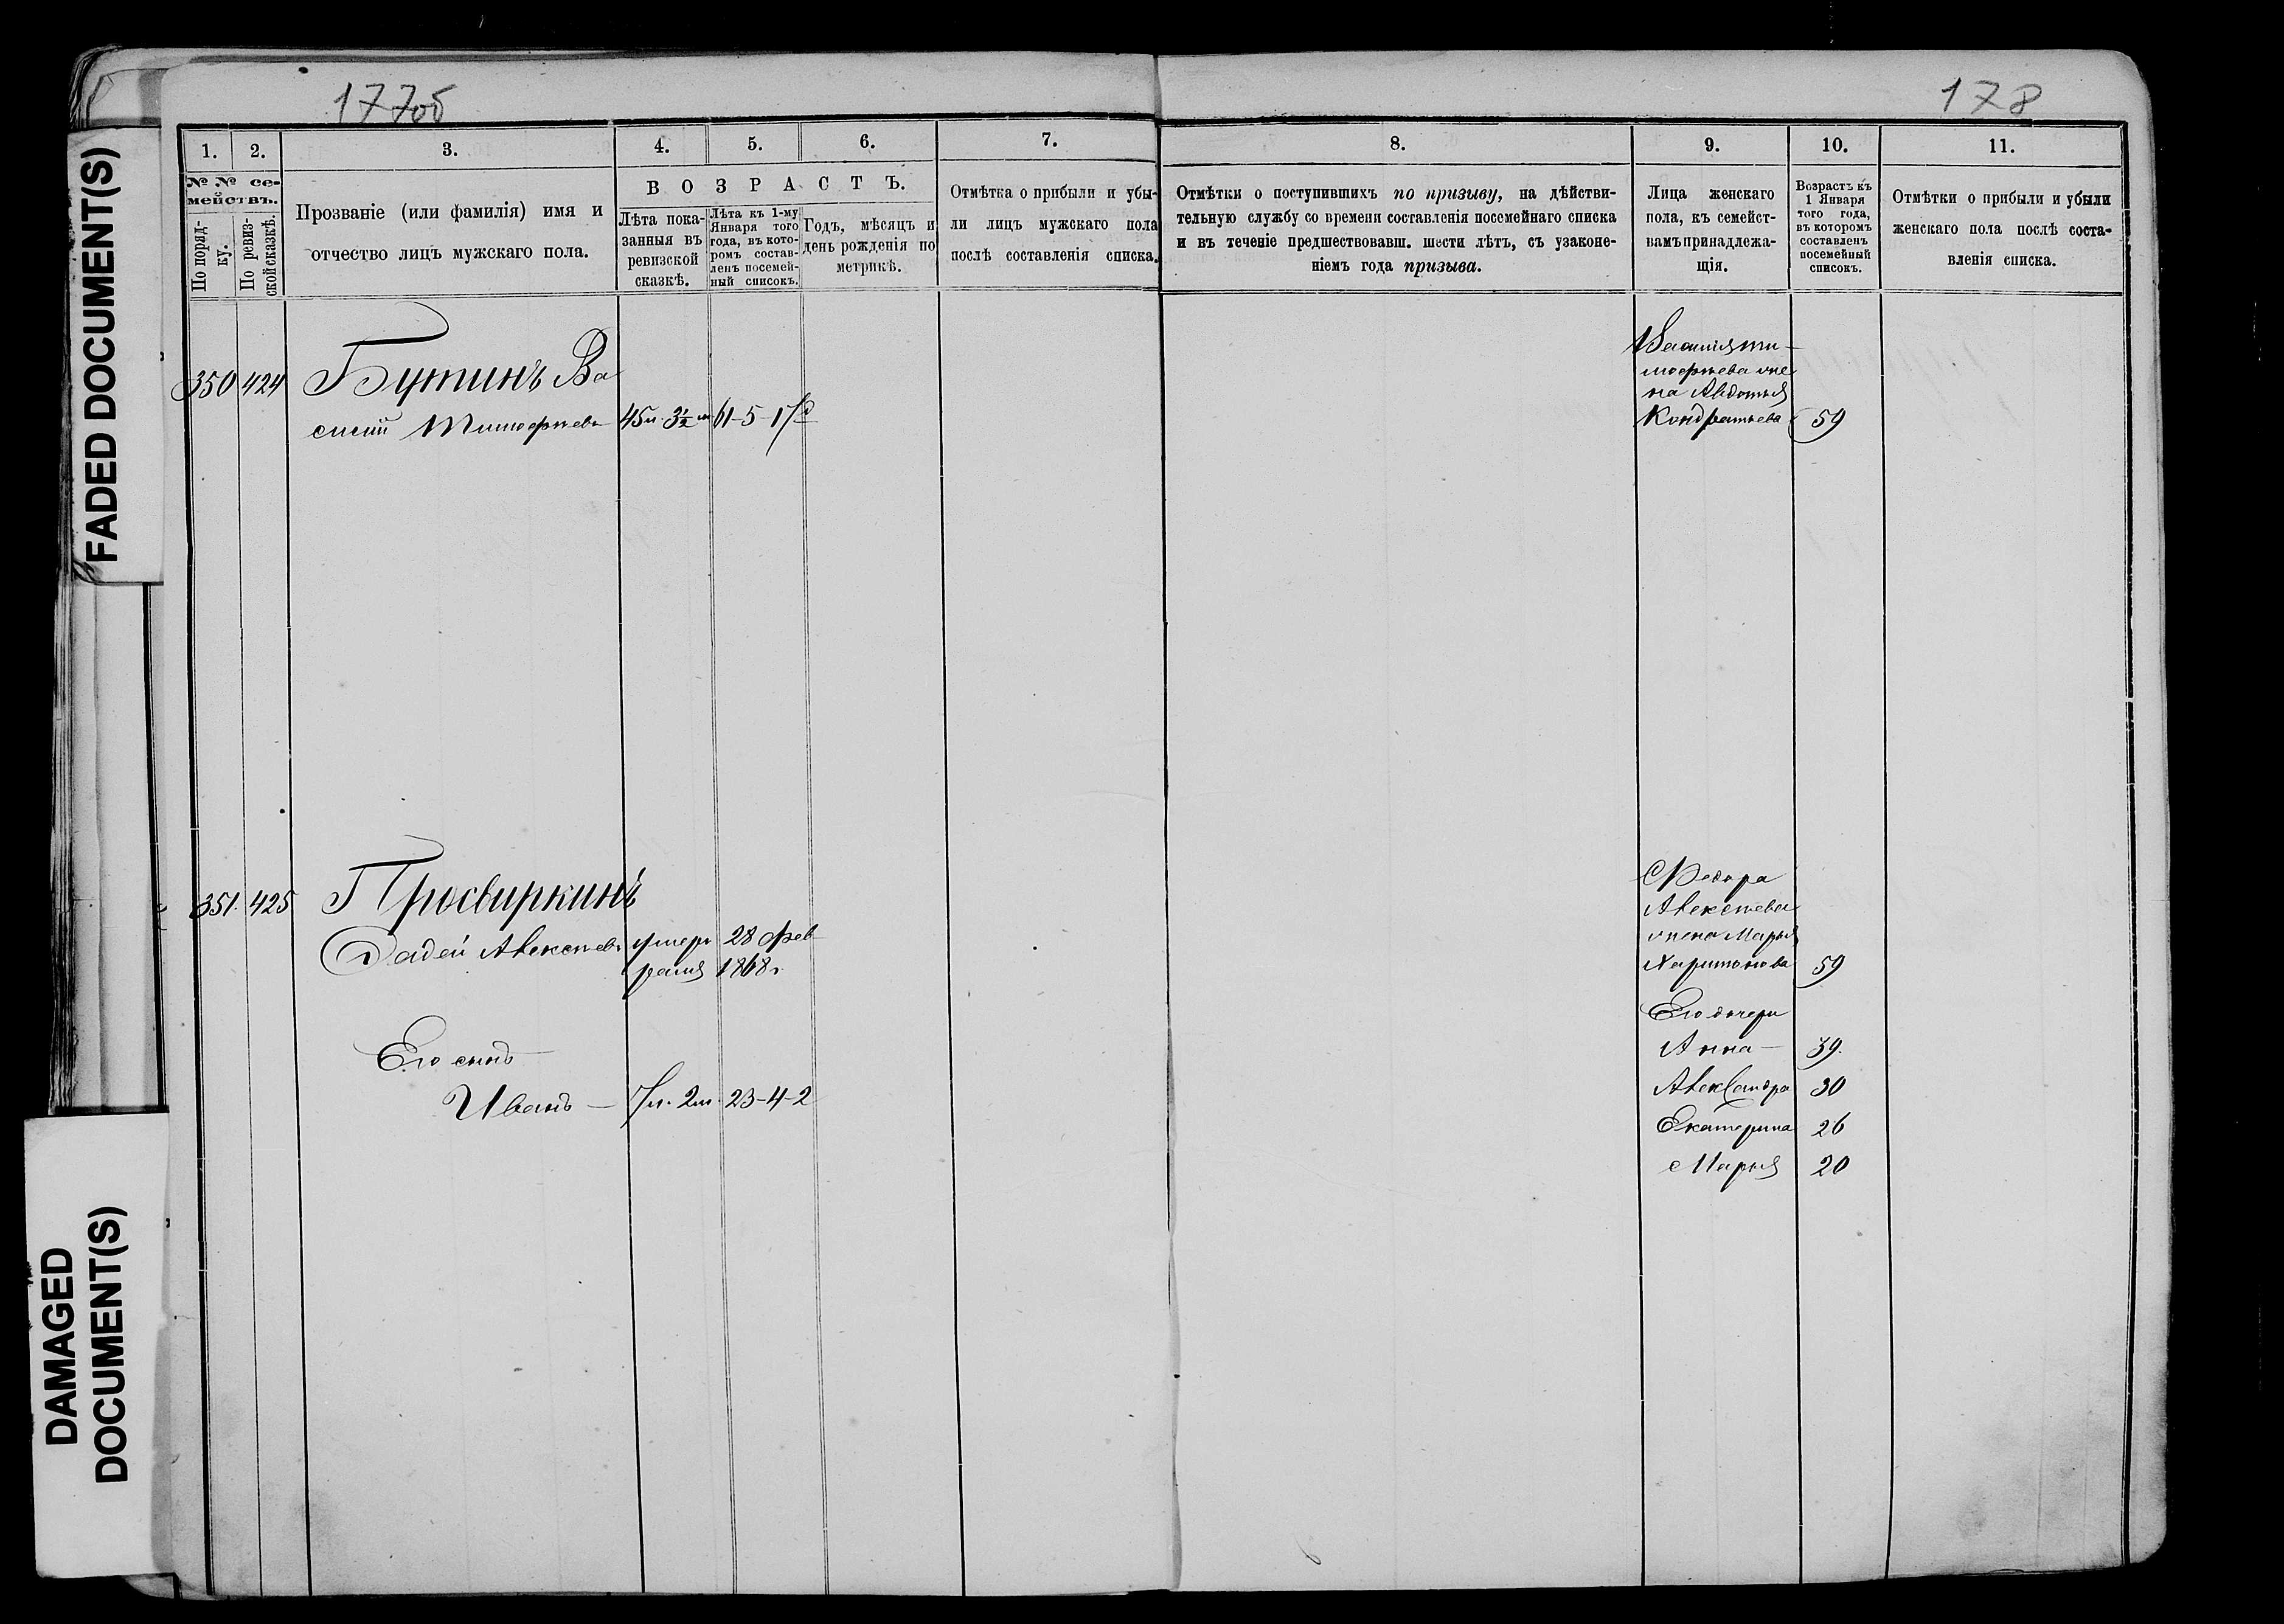 177об
178
FADED DOCUMENT(S)
DAMAGED
DOCUMENT(S)
1.
2.
3.
4.
5.
6.
7.
8.
9.
10.
11.
№ № се-
мействъ.
По поряд-
ку.
По ревиз-
ской сказкѣ.
Прозваніе (или фамилія) имя и
отчество лицъ мужскаго пола.
ВОЗРАСТЪ.
Лѣта пока-
занныя въ
ревизской
сказкѣ.
Лѣта къ 1-му
Января того
года, въ кото-
ромъ состав-
ленъ посемей-
ный списокъ.
Годъ, мѣсяцъ и
день рожденія по
метрикѣ.
Отмѣтка о прибыли и убы-
ли лицъ мужскаго пола
послѣ составленія списка.
Отмѣтки о поступившихъ по призыву, на дѣйстви-
тельную службу со времени составленія посемейнаго списка
и въ теченіе предшествовавш. шести лѣтъ, съ узаконе-
ніемъ года призыва.
Лица женскаго
пола, къ семейст-
вамъ принадлежа-
щія.
Возрастъ къ
1 Января
того года,
въ которомъ
составленъ
посемейный
списокъ.
Отмѣтки о прибыли и убыли
женскаго пола послѣ соста-
вленія списка.
350 424 Бутинъ Ва
силій Тимофѣевъ 45л. 3½ м 61-5-17
Василія Ти-
мофѣева жe
на Авдотья
Кондратьева 59
351. 425 Просвиркинъ
Фадей Алексѣевъ умеръ 28 фев
раля 1868г.
Его сынъ
Иванъ — 7л. 2м. 23-4-2
Алексѣева
жена Марья
Харитонова 59
Его дочери
Анна — 39.
Александра 30
Екатерина 26
Марья 20